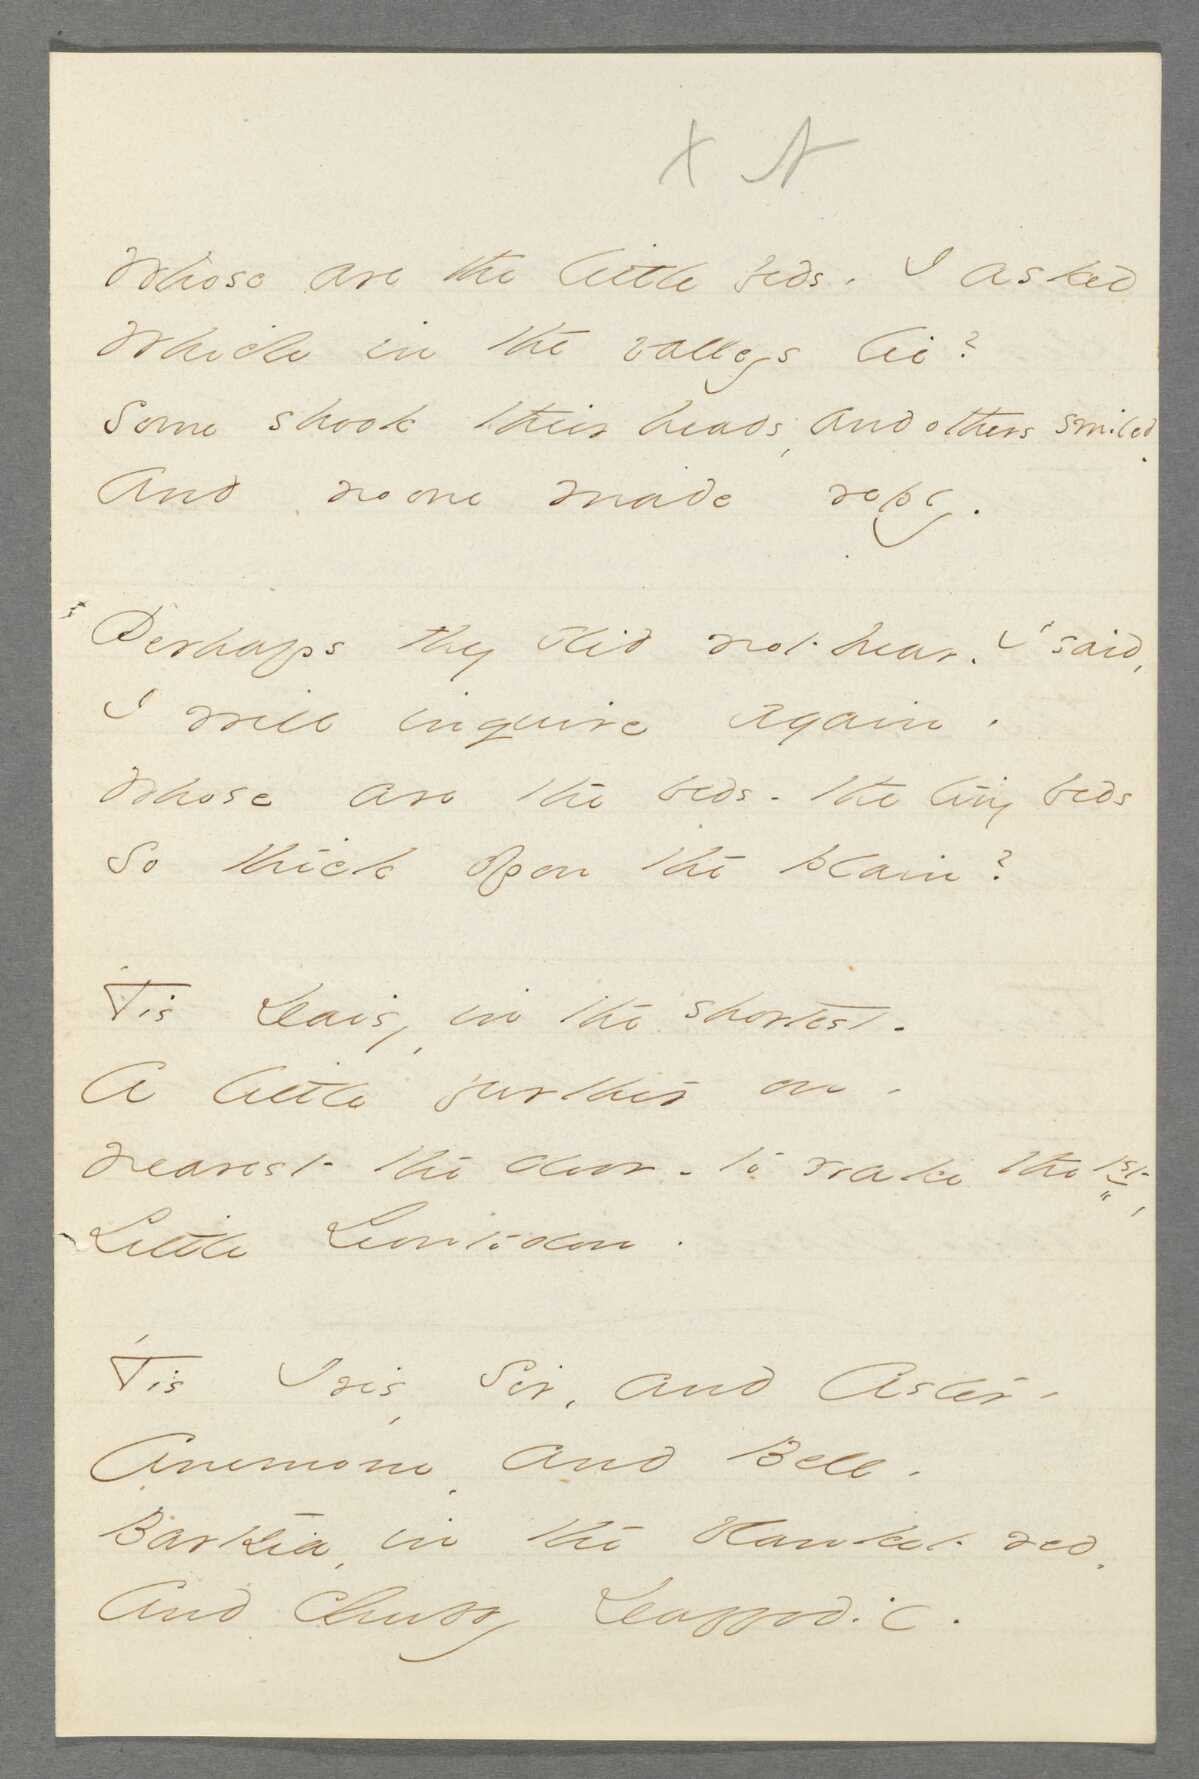 X N
Whose are the little beds. I asked
Which in the valleys lie?
Some shook their heads, and others smiled.
And no one made reply.
Perhaps they did not hear. I said,
I will inquire again.
Whose are the beds - the tiny beds
So thick opon the plain?
'Tis Daisy, in the shortest.
A little further on.
Nearest the door - to wake the 1st,
Little Leontodon.
'Tis Iris, Sir, and Aster.
Anemone, and Bell.
Bartsia, in the blanket red.
And Chubby Daffodil.